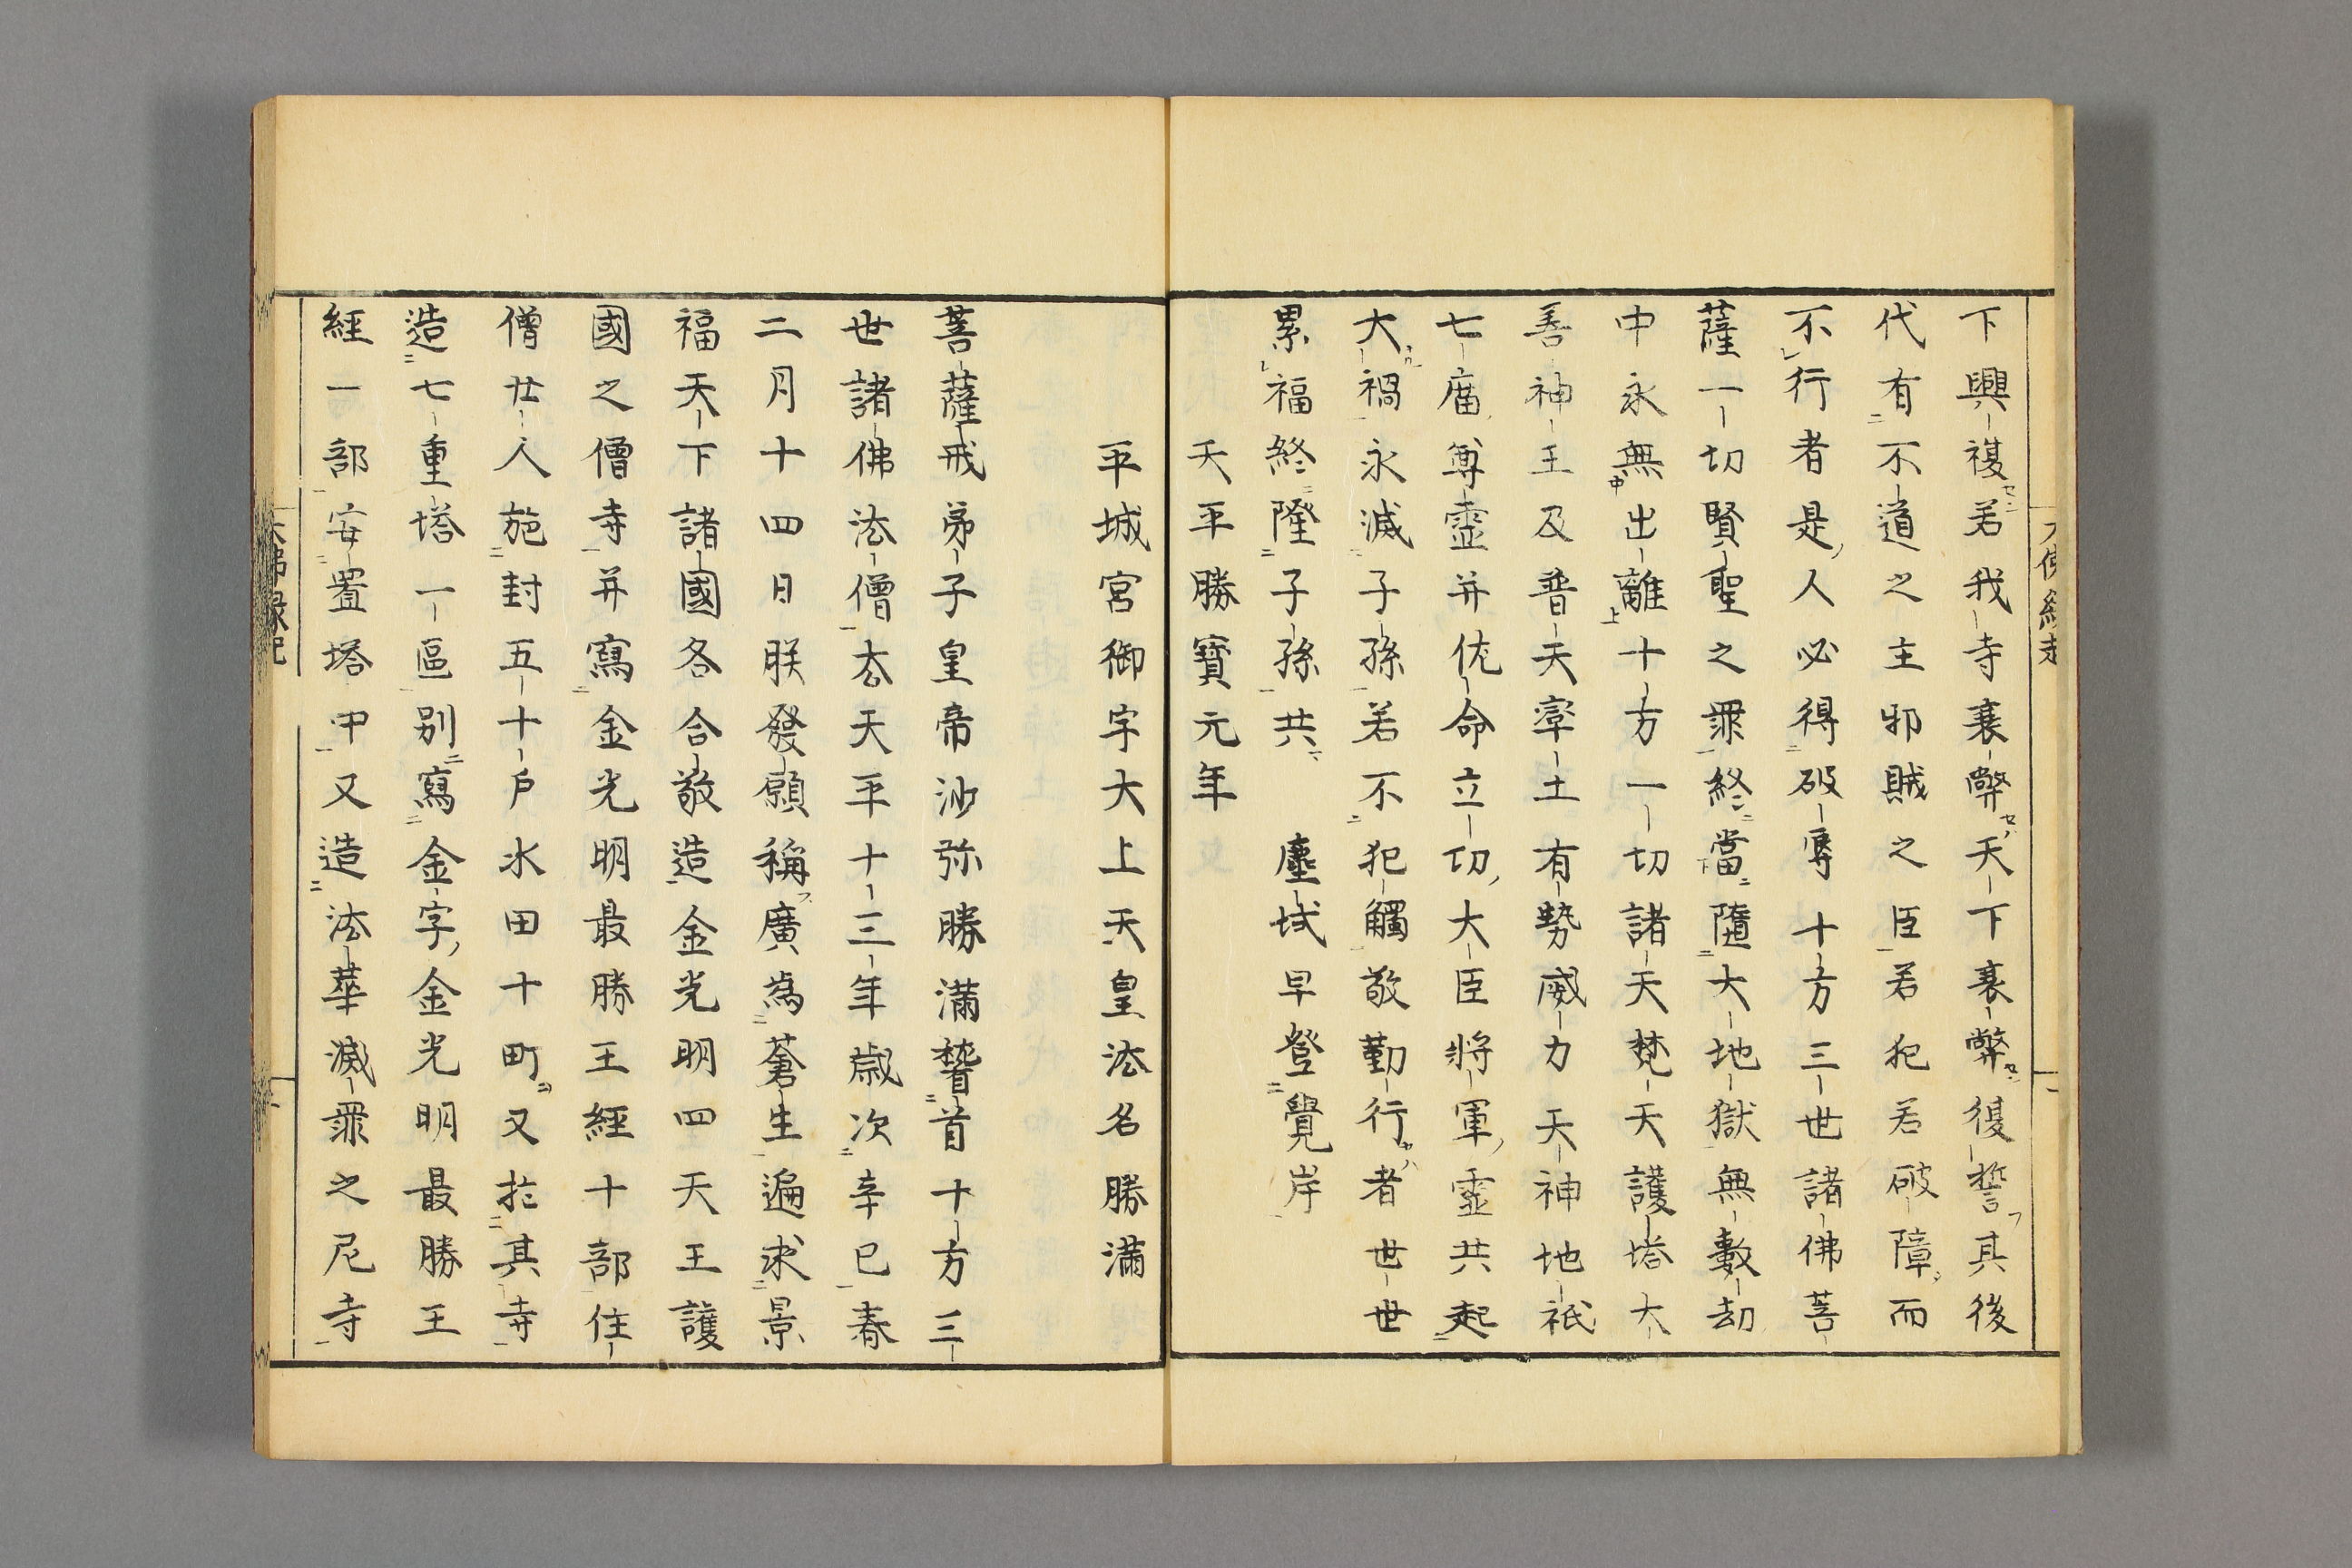 下興複若我寺衰弊天下衰弊復誓其後
代有不道之主邪賊之臣若犯若破障而
不行者是人必得破辱十方三世諸佛菩
薩一切賢聖之罪終當隨大地獄無數劫
中永無出離十方一切諸天梵天護塔大
善神王及普天率土有勢威力天神地祇
七廟尊靈并佐命立功大臣將軍靈共起
大禍永滅子孫若不犯觸敬勤行者世世
累福終隆子孫共塵域早登覺岸
天平勝寶元年
平城宮御宇大上天皇法名勝滿
菩薩戒弟子皇帝沙弥勝滿𥡴首十方三
世諸佛法僧去天平十三年歳次辛巳春
二月十四日朕發願稱廣為蒼生遍求景
福天下諸國各合敬造金光明四天王護
國之僧寺并寫金光明最勝王經十部住
僧廿人施封五十戶水田十町又於其寺
造七重塔一區別寫金字金光明最勝王
經一部安置塔中又造法華滅罪之尼寺